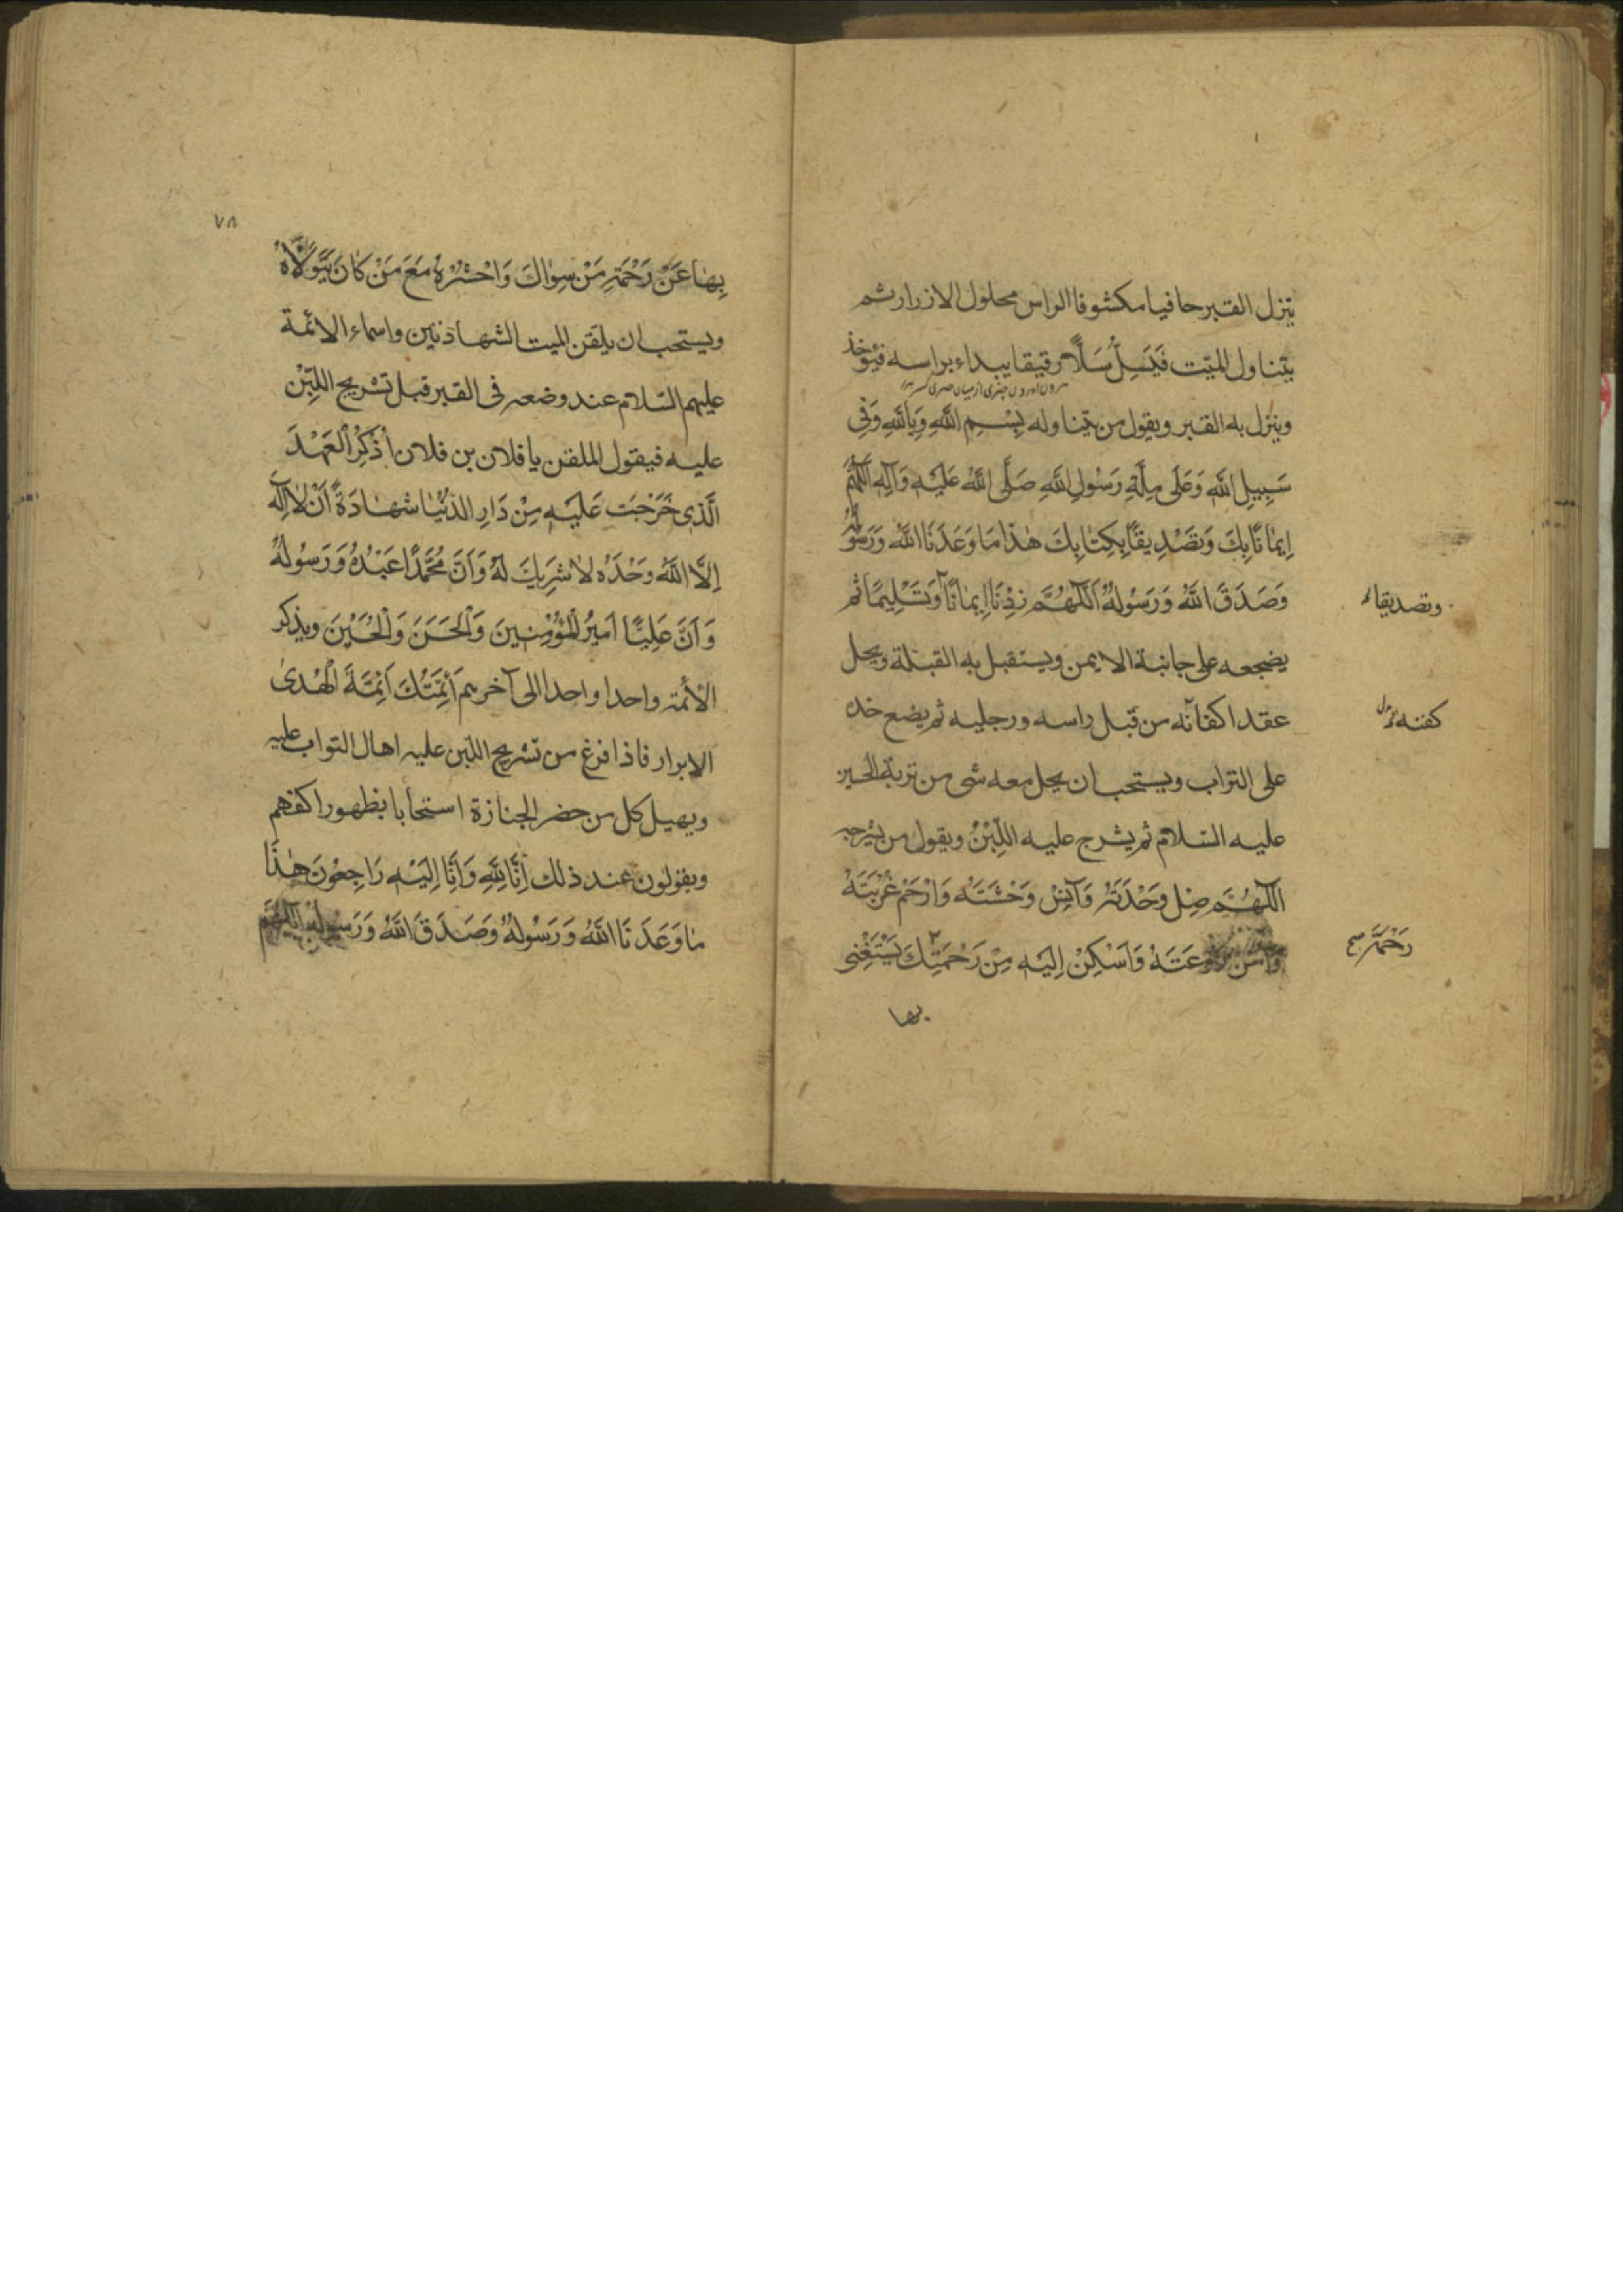 ينزل القبر حافيا مكشوفا الراس محلول الازرار ثم
يتناول الميّت فَيَسِلُّ سَلًّا رقيقا يبداء براسه فيؤخذ
وينزل به القبر ويقول من يتناوله بِسْمِ اللَّهِ وَبِاللَّهِ وَفِي
سَبِيلِ اللَّهِ وَعَلَى مِلَّةِ رَسُولِ اللَّهِ صَلَّى اللَّهُ عَلَيْهِ وَآلِهِ اَللّٰهُمَّ
اِيمَانًا بِكَ وَتَصْدِيقًا بِكِتَابِكَ هٰذَا مَا وَعَدَنَا اللَّهُ وَرَسُولُهُ
وَصَدَقَ اللَّهُ وَرَسُولُهُ اَللّٰهُمَّ زِدْنَا اِيمَانًا وَتَسْلِيمًا ثم
وتصديقا
يضجعه على جانبه الايمن ويستقبل به القبلة ويحل
عقد اكفانه من قبل راسه ورجليه ثم يضع خده
كفنه
على التراب ويستحب ان يجعل معه شى من تربة الحسين
عليه السّلام ثم يشرج عليه اللّبِنْ ويقول من يشرجه
اَللّٰهُمَّ صِلْ وَحْدَتَهُ وَآنِسْ وَحْشَتَهُ وَارْحَمْ غُرْبَتَهُ
وَآمِنْ رَوْعَتَهُ وَاَسْكِنْ اِلَيْهِ مِنْ رَحْمَتِكَ يَسْتَغْنِى
رَحْمَةً
بها
٧٨
بِهَا عَنْ رَحْمَةِ مَنْ سِوَاكَ وَاحْشُرْهُ مَعَ مَنْ كَانَ يَتَوَلَّاهُ
ويستحب ان يلقن الميت الشهادتين واسماء الائمة
عليهم السّلام عند وضعه فى القبر قبل تشريج اللّبِنْ
عليه فيقول الملقن يا فلان بن فلان اُذْكُرِ الْعَهْدَ
الَّذِى خَرَجْتَ عَلَيْهِ مِنْ دَارِ الدُّنْيَا شَهَادَةً اَنْ لَا اِلٰهَ
اِلَّا اللَّهُ وَحْدَهُ لَا شَرِيكَ لَهُ وَاَنَّ مُحَمَّدًا عَبْدُهُ وَرَسُولُهُ
وَاَنَّ عَلِيًّا اَمِيرُ الْمُؤْمِنِينَ وَالْحَسَنَ وَالْحُسَيْنَ ويذكر
الائمة واحدا واحدا الى آخرهم اَئِمَّتُكَ اَئِمَّةُ الْهُدىٰ
الابرار فاذا فرغ من تشريج اللبن عليه اهال التراب عليه
ويهيل كل من حضر الجنازة استحبابا بظهور اكفهم
ويقولون عند ذلك اِنَّا لِلَّهِ وَاِنَّا اِلَيْهِ رَاجِعُونَ هٰذَا
مَا وَعَدَنَا اللَّهُ وَرَسُولُهُ وَصَدَقَ اللَّهُ وَرَسُولُهُ اَللّٰهُمَّ